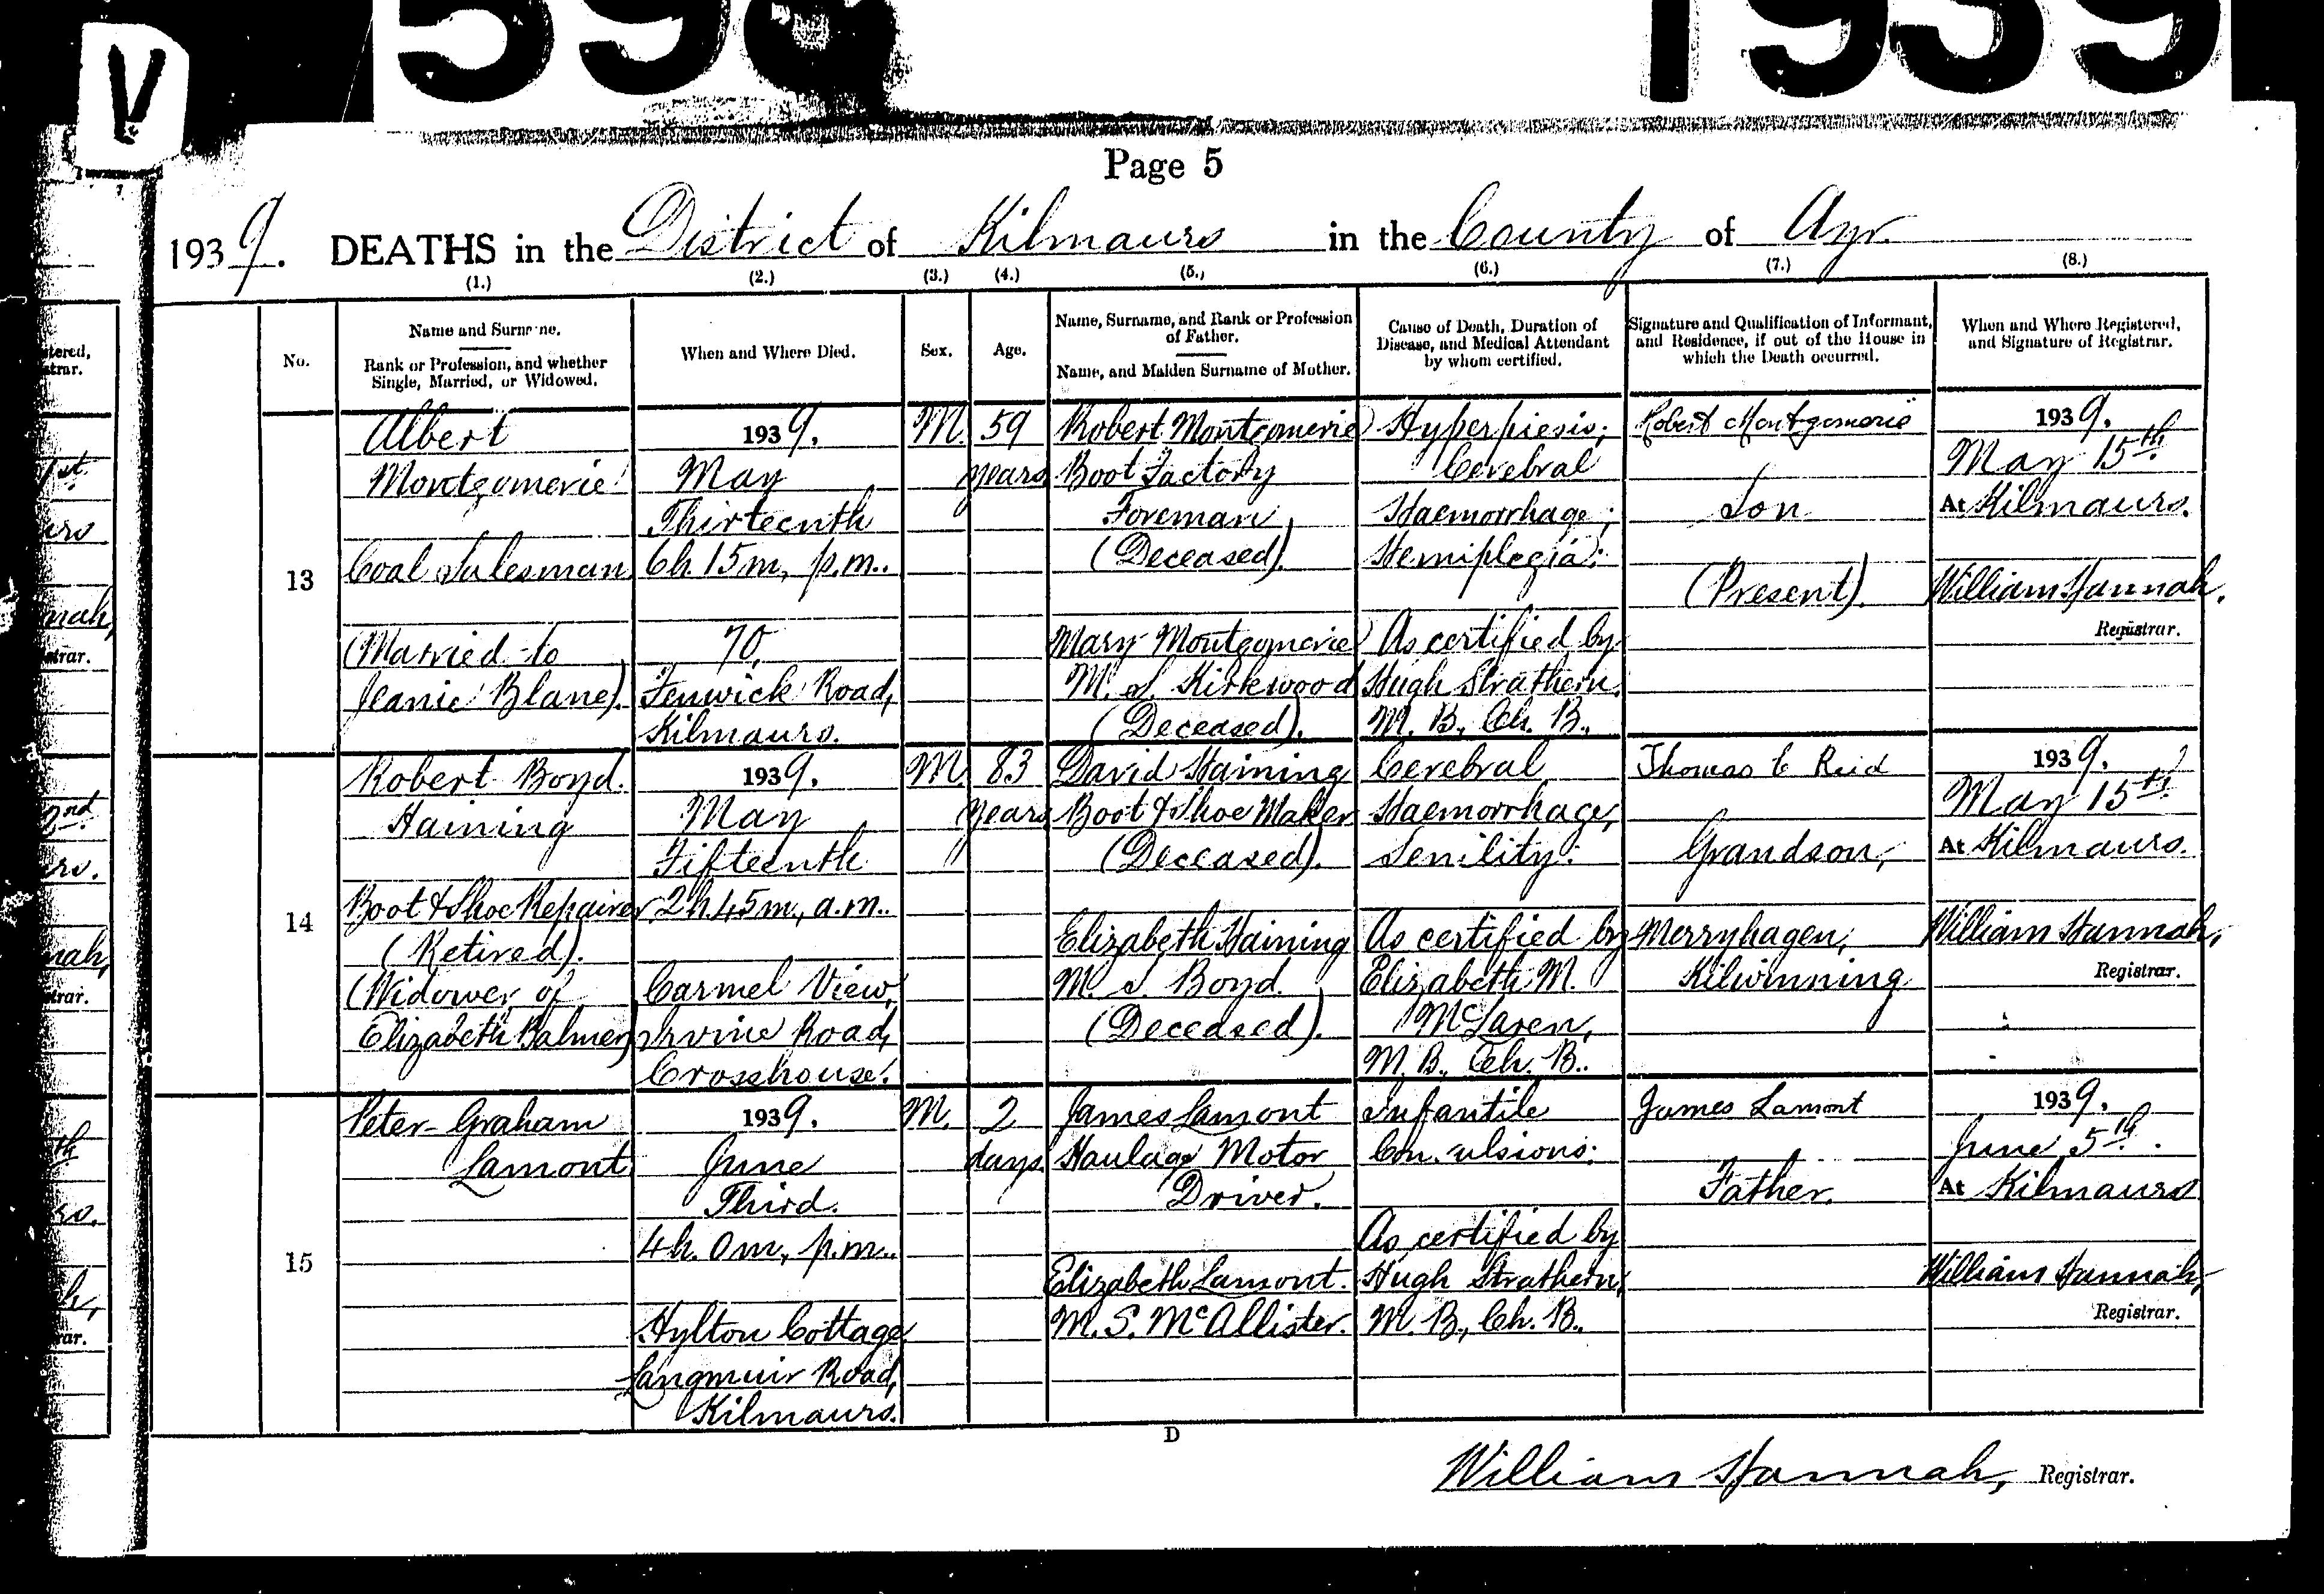 V
598
1939
Page 5
1939. DEATHS in the District of Kilmaurs in the County of Ayr.
(1.) (2.) (3.) (4.) (5.) (6.) (7.) (8.)
No.
Name and Surname.
Rank or Profession, and whether
Single, Married, or Widowed.
When and Where Died.
Sex.
Age.
Name, Surname, and Rank or Profession
of Father.
Name, and Maiden Surname of Mother.
Cause of Death, Duration of
Disease, and Medical Attendant
by whom certified.
Signature and Qualification of Informant,
and Residence, if out of the House in
which the Death occurred.
When and Where Registered,
and Signature of Registrar.
13
Albert
Montgomerie
Coal Salesman
(Married to
Jeanie Blane).
1939.
May
Thirteenth
6h. 15m., p.m..
70,
Fenwick Road,
Kilmaurs.
M.
59
years
Robert Montgomerie
Boot Factory
Foreman
(Deceased).
Mary Montgomerie
M. S. Kirkwood
(Deceased).
Hyperpiesis;
Cerebral
Haemorrhage;
Hemiplegia:
As certified by
Hugh Strathern,
M. B., Ch. B.,
Robert Montgomerie
Son
(Present).
1939.
May 15th
At Kilmaurs.
William Hannah,
Registrar.
14
Robert Boyd.
Haining
Boot & Shoe Repairer
(Retired).
(Widower of
Elizabeth Balmer)
1939.
May
Fifteenth
2h. 45m., a.m..
Carmel View,
Irvine Road,
Crosshouse.
M.
83
years
David Haining
Boot & Shoe Maker
(Deceased).
Elizabeth Haining
M. S. Boyd.
(Deceased).
Cerebral
Haemorrhage,
Senility:
As certified by
Elizabeth M.
McLaren,
M. B., Ch. B..
Thomas C Reid
Grandson,
Merryhagen,
Kilwinning
1939.
May 15th
At Kilmaurs.
William Hannah,
Registrar.
15
Peter Graham
Lamont
1939.
June
Third.
4h. 0m., p.m..
Hylton Cottage
Langmuir Road,
Kilmaurs.
M.
2
days.
James Lamont
Haulage Motor
Driver.
Elizabeth Lamont.
M. S. McAllister.
Infantile
Convulsions:
As certified by
Hugh Strathern,
M. B., Ch. B..
James Lamont
Father.
1939.
June 5th.
At Kilmaurs
William Hannah,
Registrar.
D
William Hannah, Registrar.